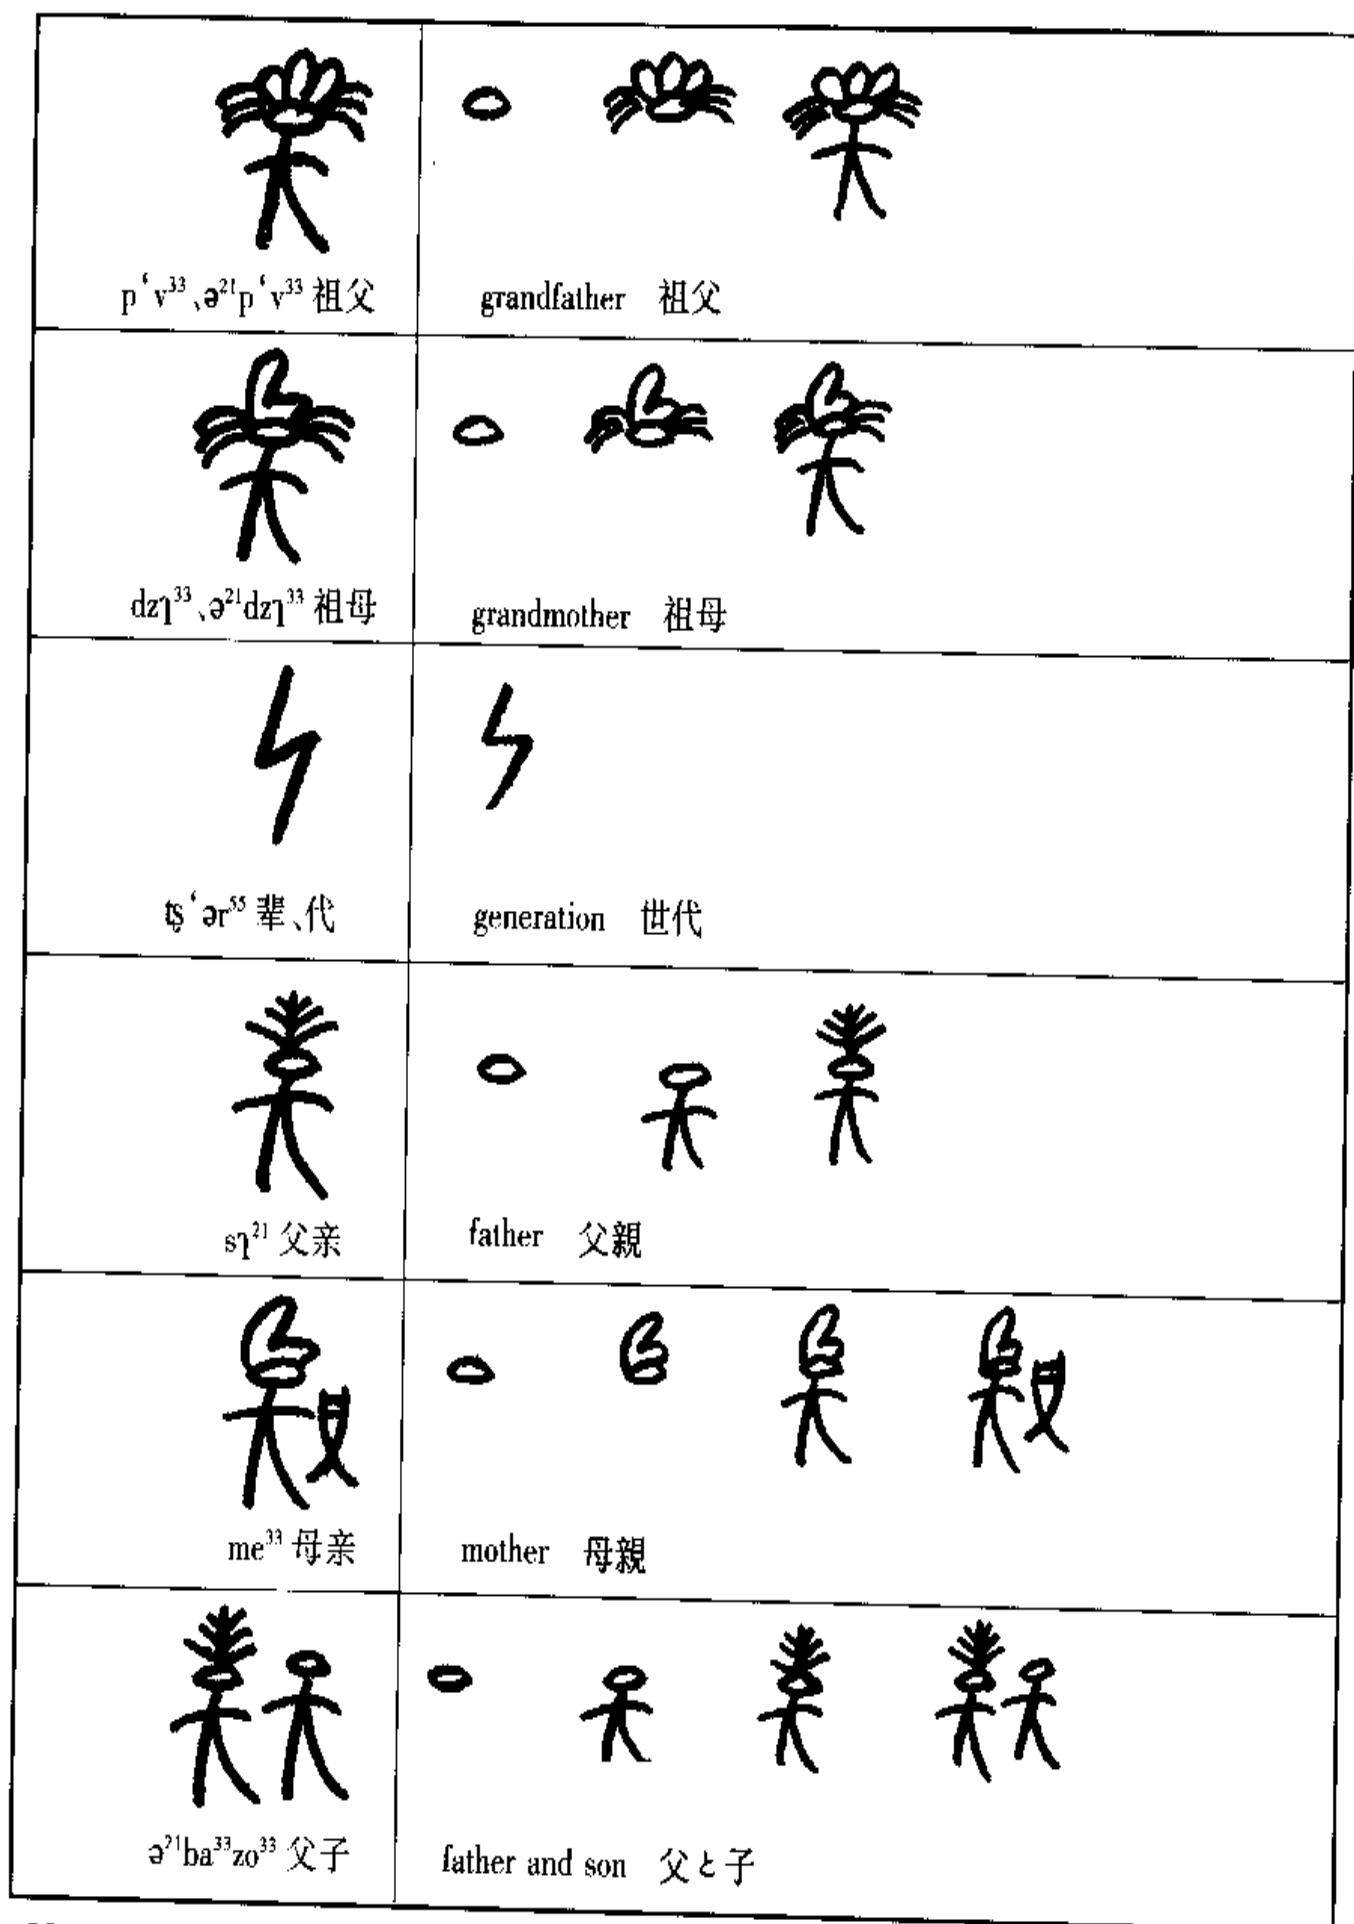 pʻv³³、ə²¹pʻv³³ 祖父
grandfather 祖父
dzʅ³³、ə²¹dzʅ³³ 祖母
grandmother 祖母
tʂʻər⁵⁵ 辈、代
generation 世代
sʅ²¹ 父亲
father 父親
me³³ 母亲
mother 母親
ə²¹ba³³zo³³ 父子
father and son 父と子